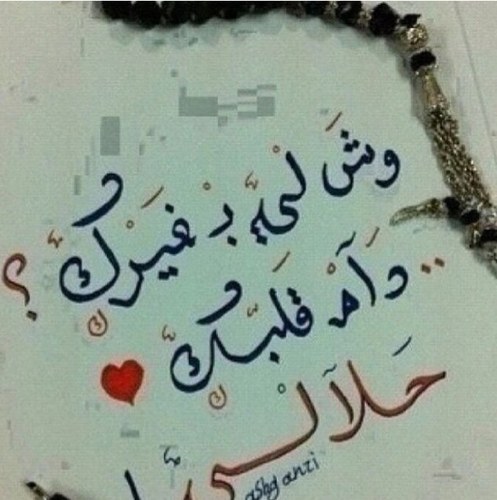 وش لي بغيرك ؟
.. دآم قلبك
حلآلي
ashg anzi